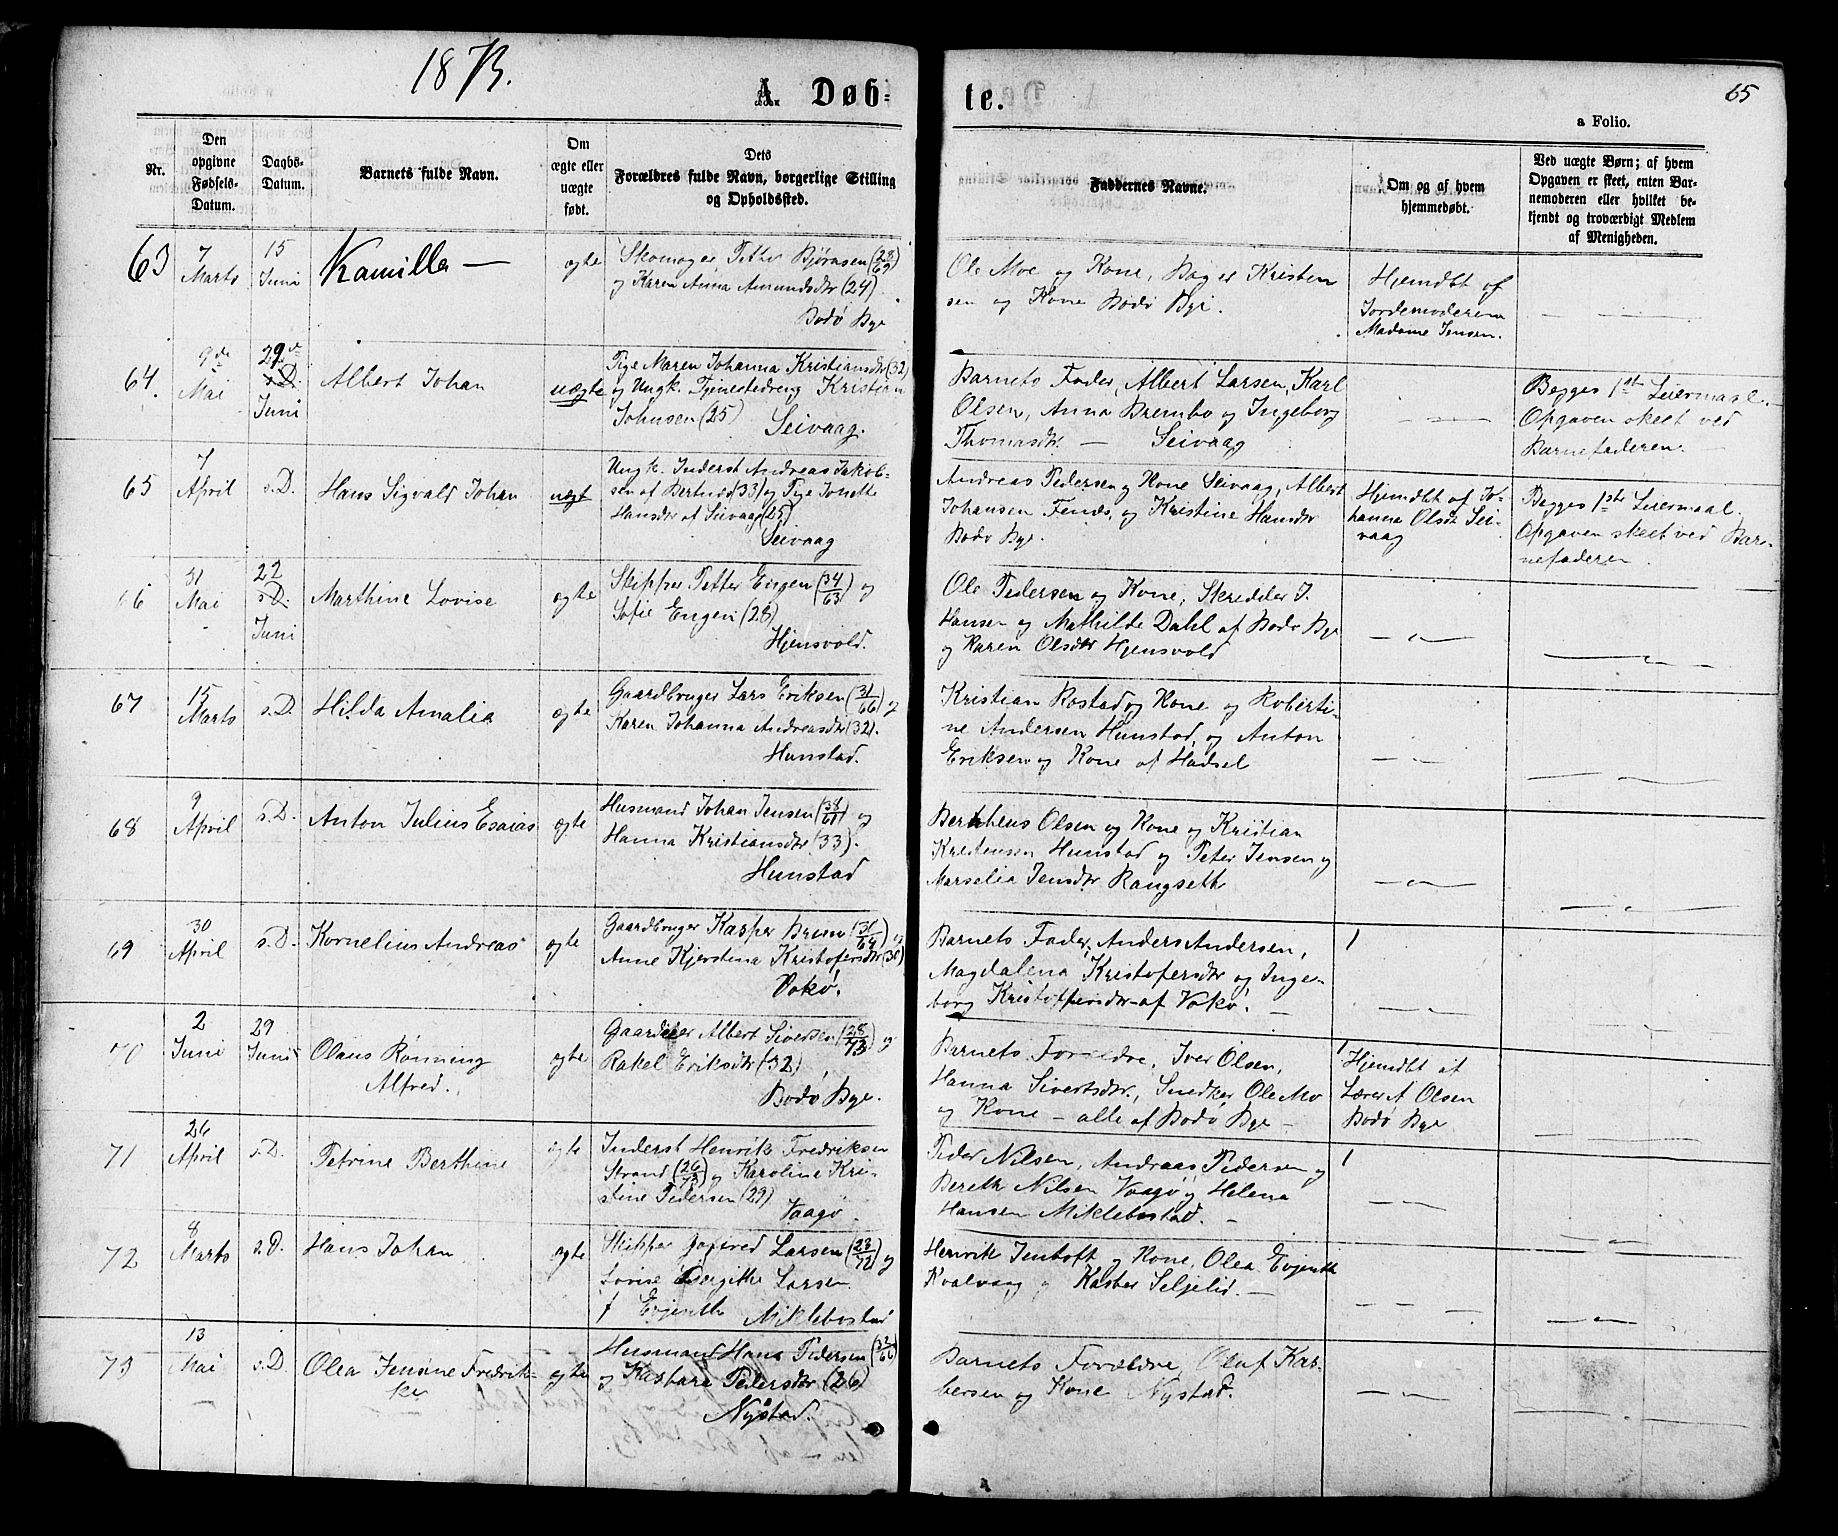 1873.
A Døb-
te.
65
a Folio.
Nr.
Den opgivne Fødsels-Datum.
Daabs-Datum.
Barnets fulde Navn.
Om ægte eller uægte født.
Dets Forældres fulde Navn, borgerlige Stilling og Opholdssted.
Faddernes Navne.
Om og af hvem hjemmedøbt.
Ved uægte Børn; af hvem Opgaven er skeet, enten Barnemoderen eller hvilket bekjendt og troværdigt Medlem af Menigheden.
63
7 Marts
15 Juni
Kamilla —
ægte
Skomager Petter Bjørnsen (28/69)
og Karen Anna Amundsdtr (24)
Bodø Bye
Ole Moe og Kone, Bager Kristen
sen og Kone Bodø Bye.
Hjemdbt af
Jordemoderen
Madame Jensen.
64.
9de Mai
29de s.D. Juni
Albert Johan
uægte
Pige Maren Johanna Kristiansdtr (32)
og Ungk. Tjenestedreng Kristian
Johnsen (25) Seivaag.
Barnets Fader, Albert Larsen, Karl
Olsen, Anna Brembo og Ingeborg
Thomasdtr. — Seivaag
Begges 1ste Leiermaal.
Opgaven skeet ved
Barnefaderen.
65
7 April
s.D.
Hans Sigvald Johan
uægt
Ungk. Inderst Andreas Jakob-
sen af Bertnæs (33) og Pige Jonette
Hansdtr af Seivaag (25)
Seivaag
Andreas Pedersen og Kone Seivaag, Albert
Johansen Fenes, og Kristine Hansdtr
Bodø Bye.
Hjemdbt af Jo-
hanna Olsdtr Sei-
vaag
Begges 1ste Leiermaal.
Opgaven skeet ved Bar-
nefaderen.
66
31 Mai
22 s.D. Juni
Marthine Lovise
ægte
Skipper Petter Engen (34/63) og
Sofie Engen (28)
Hjensvold.
Ole Pedersen og Kone, Skredder J.
Hansen og Mathilde Dahl af Bodø Bye
og Karen Olsdtr Hjensvold
67
15 Marts
s.D.
Hilda Amalia
ægte
Gaardbruger Lars Eriksen (31/66) og
Karen Johanna Andreasdtr (32).
Hunstad.
Kristian Rostad og Kone og Roberti-
ne Andersen Hunstad, og Anton
Eriksen og Kone af Hadsel
68
9 April
s.D.
Anton Julius Esaias
ægte
Husmand Johan Jensen (38/61) og
Hanna Kristiansdtr (33).
Hunstad
Bertheus Olsen og Kone og Kristian
Kristensen Hunstad og Peter Jensen og
Marselia Jensdtr Rangseth
69
30 April
s.D.
Kornelius Andreas
ægte
Gaardbruger Kasper Bruun (31/64) og
Anne Kjerstina Kristofersdtr (38)
Vokø.
Barnets Fader, Anders Andersen,
Magdalena Kristofersdtr og Inge-
borg Kristoffersdtr af Vokø.
70
2 Juni
29 Juni
Olaus Rønning
Alfred.
ægte
Gaardeier Albert Sivertsen (28/73) og
Rakel Eriksdtr (32)
Bodø Bye.
Barnets Forældre, Iver Olsen,
Hanna Sivertsdtr., Snedker Ole Mo
og Kone — alle af Bodø Bye —
Hjemdbt af
Lærer A Olsen
Bodø Bye
71
26 April
s.D.
Petrine Berthine
ægte
Inderst Henrik Fredriksen
Strand (26/73) og Karoline Kri-
stine Pedersen (29)
Vaagø
Peder Nilsen, Andreas Pedersen og
Bereth Nilsen Vaagø og Helena
Hansen Miklebostad. —
72
8 Marts
s.D.
Hans Johan
ægte
Skipper Gotfred Larsen (23/72) og
Lovise Bergitte Larsen
f Evjenth Miklebostad
Henrik Jentoft og Kone, Olea Evjenth
Kvalvaag og Kasber Seljelid. —
73
13 Mai
s.D.
Olea Jensine Fredrik-
ke
ægte
Husmand Hans Pedersen (32/66)
og Kasbara Pedersdtr (26)
Nystad.
Barnets Forældre, Oluf Kas-
bersen og Kone Nystad.